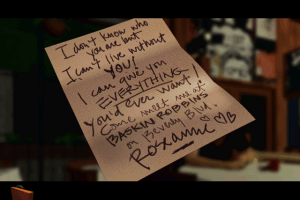 I don't know who
you are but
I can't live without
YOU!
I can give you
EVERYTHING
you'd ever want!
Come meet me at
BASKIN ROBBINS
on Beverly Blvd.
Roxanne